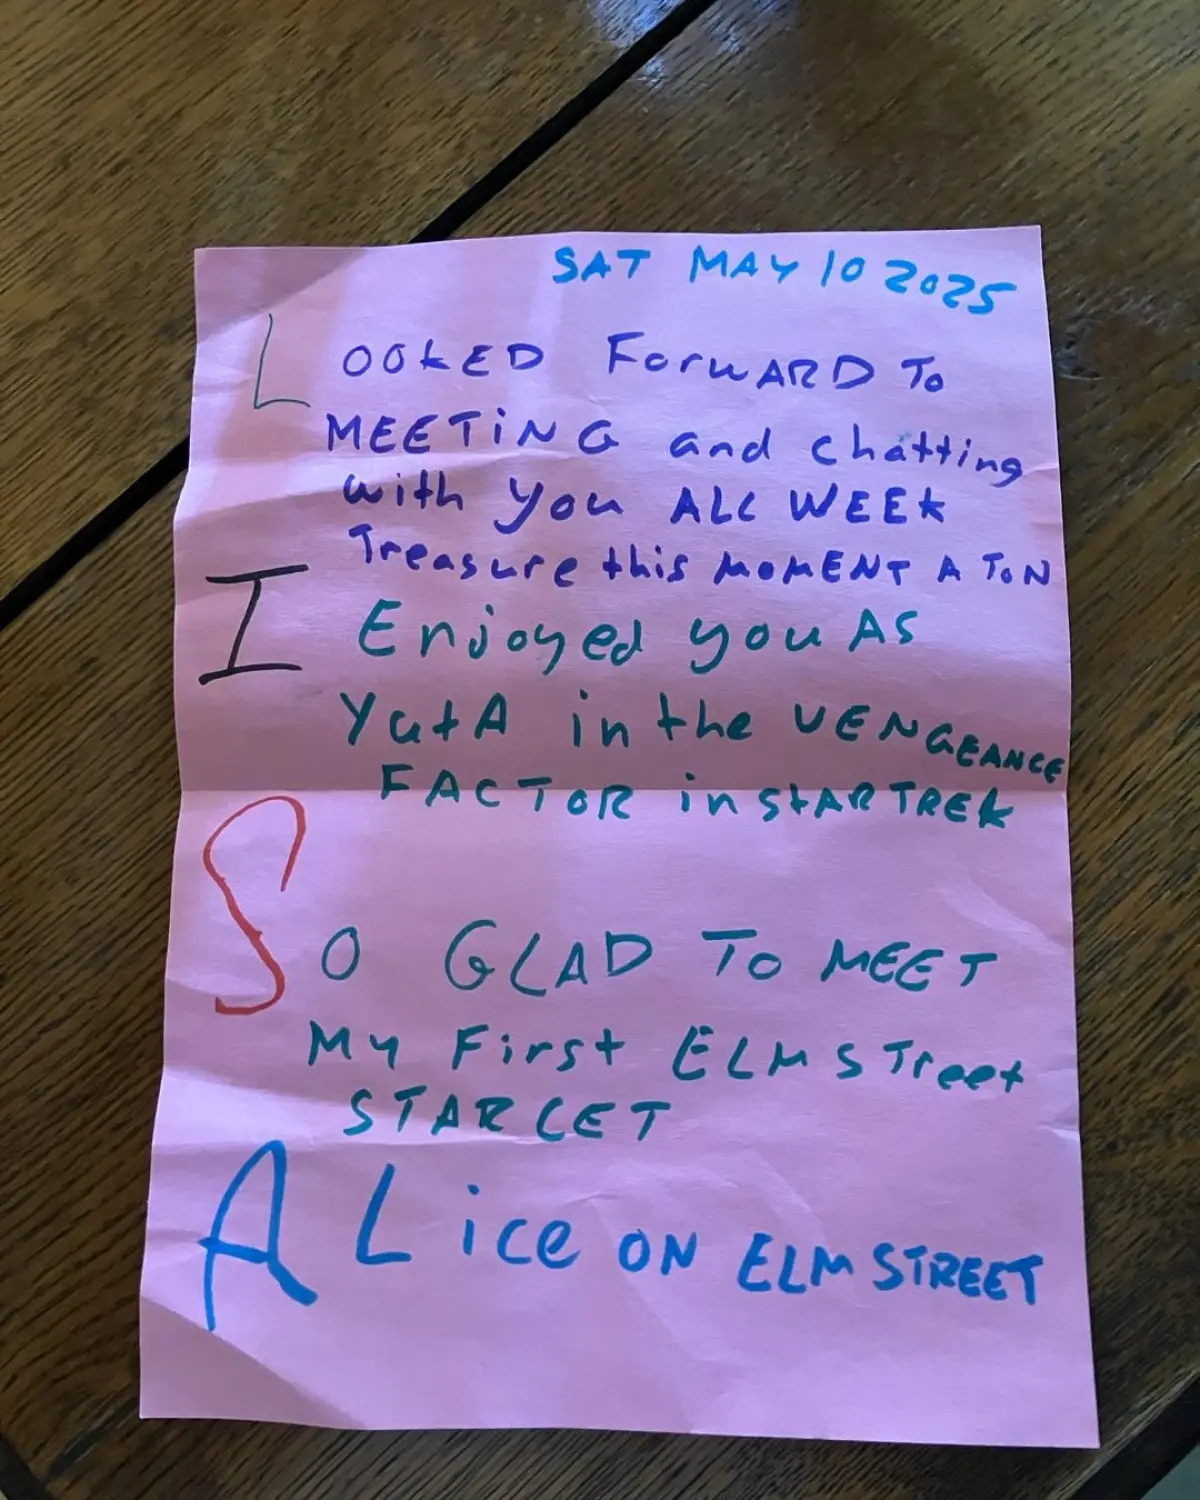 SAT MAY 10 2025
LOOKED ForwARD To
MEETiNG and chatting
with you ALL WEEK
Treasure this MOMENT A ToN
I Enjoyed you AS
YutA in the VENGEANCE
FACTOR in StAR TREK
SO GLAD TO MEET
My First ELM STreet
STARLET
ALice ON ELM STREET